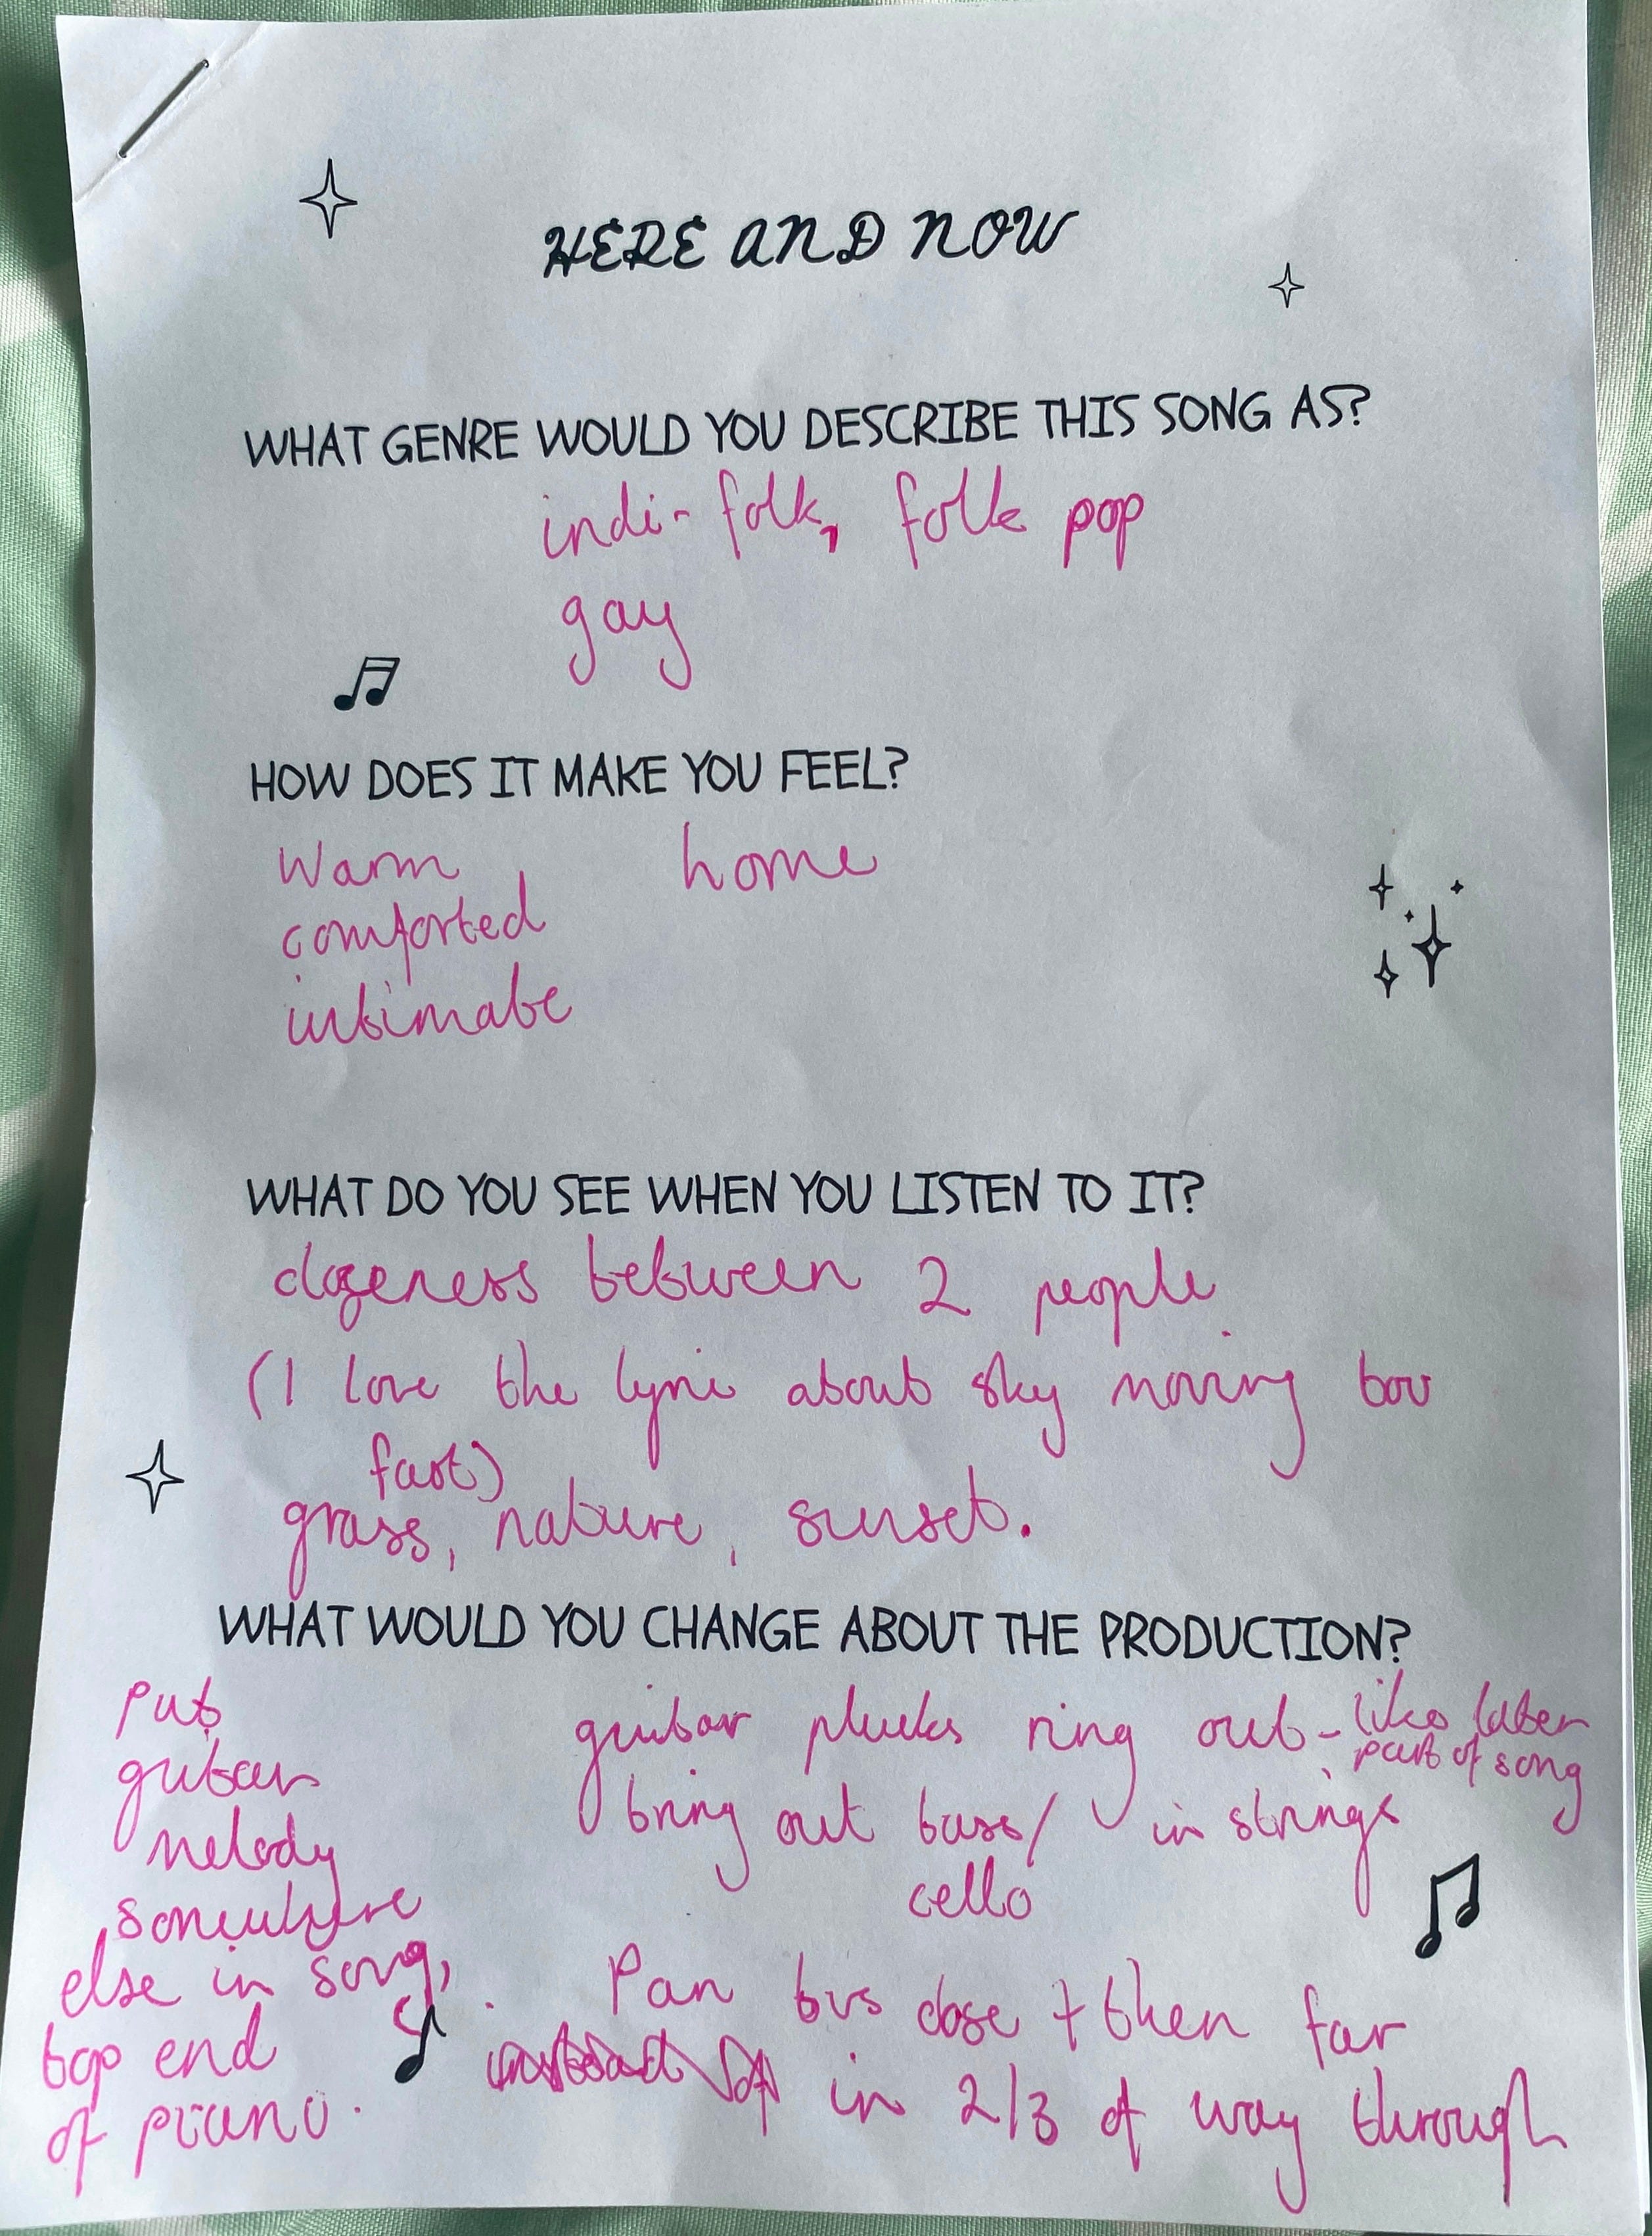 HERE AND NOW
WHAT GENRE WOULD YOU DESCRIBE THIS SONG AS?
indi-folk, folk pop
gay
HOW DOES IT MAKE YOU FEEL?
warm home
comforted
intimate
WHAT DO YOU SEE WHEN YOU LISTEN TO IT?
closeness between 2 people.
(I love the lyric about sky moving too
fast)
grass, nature, sunset.
WHAT WOULD YOU CHANGE ABOUT THE PRODUCTION?
put
guitar
melody
somewhere
else in song,
top end
of piano.
guitar plucks ring out - like later
part of song
bring out bass/ in strings
cello
Pan bvs close + then far
in 2/3 of way through